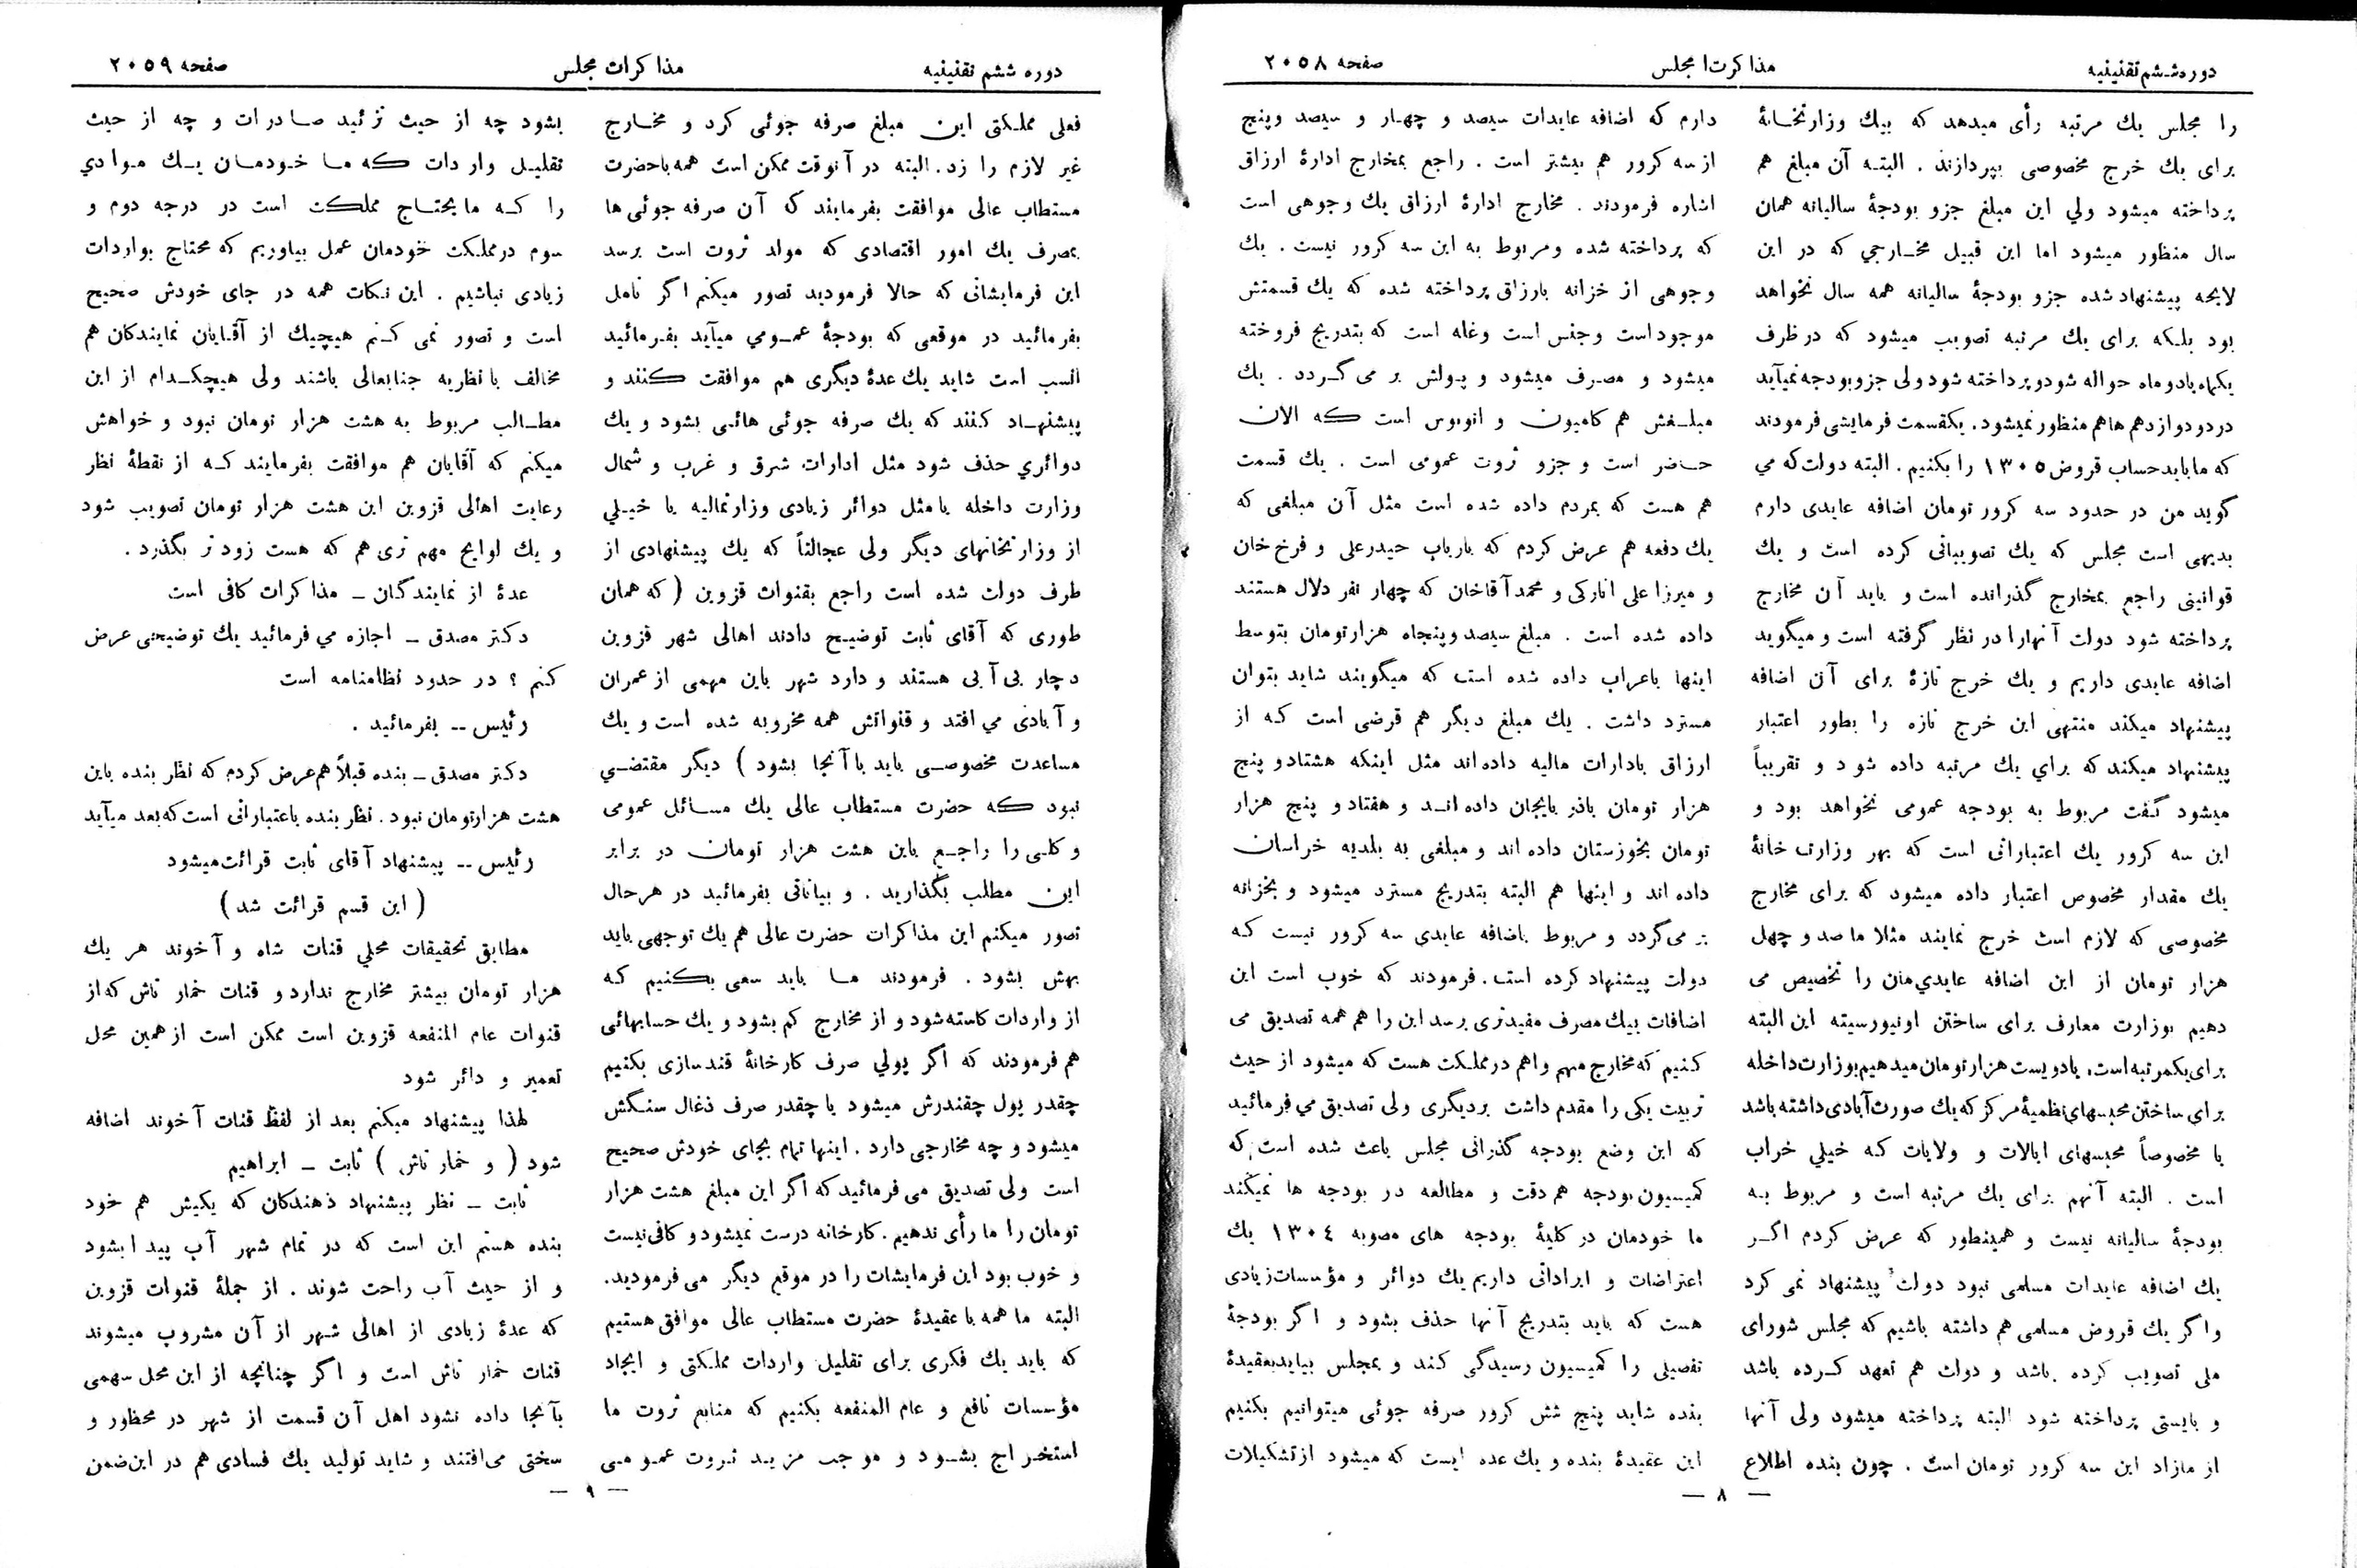 دوره ششم تقنینیه
مذاکرت‌ا مجلس
صفحه ۲۰۵۸
را مجلس یك مرتبه رأی میدهد که بیك وزارتخانهٔ
برای یك خرج مخصوصی بپردازند . البته آن مبلغ هم
پرداخته میشود ولي این مبلغ جزو بودجهٔ سالیانه همان
سال منظور میشود اما این قبیل مخارجي که در این
لایحه پیشنهاد شده جزو بودجهٔ سالیانه همه سال نخواهد
بود بلکه برای یك مرتبه تصویب میشود که در ظرف
یکماه یا دو ماه حواله شود و پرداخته شود ولی جزو بودجه نمیآید
در دو دوازدهم ها هم منظور نمیشود. یکقسمت فرمایشی فرمودند
که ما باید حساب قروض ۱۳۰۵ را بکنیم . البته دولت که می
گوید من در حدود سه کرور تومان اضافه عایدی دارم
بدیهی است مجلس که یك تصویباتی کرده است و یك
قوانینی راجع بمخارج گذرانده است و باید آن مخارج
پرداخته شود دولت آنهارا در نظر گرفته است و میگوید
اضافه عایدی داریم و یك خرج تازهٔ برای آن اضافه
پیشنهاد میکند منتهی این خرج تازه را بطور اعتبار
پیشنهاد میکند که برای یك مرتبه داده شود و تقریباً
میشود گفت مربوط به بودجه عمومی نخواهد بود و
این سه کرور یك اعتباراتی است که بهر وزارت خانهٔ
یك مقدار مخصوص اعتبار داده میشود که برای مخارج
مخصوصی که لازم است خرج نمایند مثلا ما صد و چهل
هزار تومان از این اضافه عایدي‌مان را تخصیص می
دهیم بوزارت معارف برای ساختن اونیورسیته این البته
برای یکمرتبه است. یا دویست هزار تومان میدهیم بوزارت داخله
برای ساختن محبسهای نظمیهٔ مرکز که یك صورت آبادی داشته باشد
یا مخصوصاً محبسهای ایالات و ولایات که خیلي خراب
است . البته آنهم برای یك مرتبه است و مربوط به
بودجهٔ سالیانه نیست و همینطور که عرض کردم اگر
یك اضافه عایدات مسلمی نبود دولت پیشنهاد نمی کرد
واگر یك قروض مسلمی هم داشته باشیم که مجلس شورای
ملی تصویب کرده باشد و دولت هم تعهد کرده باشد
و بایستی پرداخته شود البته پرداخته میشود ولی آنها
از مازاد این سه کرور تومان است . چون بنده اطلاع
دارم که اضافه عایدات سیصد و چهار و سیصد وپنج
از سه کرور هم بیشتر است . راجع بمخارج ادارهٔ ارزاق
اشاره فرمودند . مخارج ادارهٔ ارزاق یك وجوهی است
که پرداخته شده ومربوط به این سه کرور نیست . یك
وجوهی از خزانه بارزاق پرداخته شده که یك قسمتش
موجود است وجنس است وغله است که بتدریج فروخته
میشود و مصرف میشود و پولش بر می گردد . یك
مبلغش هم کامیون و اتوبوس است که الان
حاضر است و جزو ثروت عمومی است . یك قسمت
هم هست که بمردم داده شده است مثل آن مبلغی که
یك دفعه هم عرض کردم که بارباب حیدرعلی و فرخ خان
و میرزا علی انارکی و محمد آقاخان که چهار نفر دلال هستند
داده شده است . مبلغ سیصد وپنجاه هزارتومان بتوسط
اینها باعراب داده شده است که میگویند شاید بتوان
مسترد داشت . یك مبلغ دیگر هم قرضی است که از
ارزاق بادارات مالیه داده‌اند مثل اینکه هشتاد و پنج
هزار تومان باذربایجان داده اند و هفتاد و پنج هزار
تومان بخوزستان داده اند و مبلغی به بلدیه خراسان
داده اند و اینها هم البته بتدریج مسترد میشود و بخزانه
بر می‌گردد و مربوط باضافه عایدی سه کرور نیست که
دولت پیشنهاد کرده است. فرمودند که خوب است این
اضافات بیك مصرف مفیدتری برسد این را هم همه تصدیق می
کنیم که مخارج مهم واهم در مملکت هست که میشود از حیث
تربیت یکی را مقدم داشت بردیگری ولی تصدیق می فرمائید
که این وضع بودجه گذرانی مجلس باعث شده است که
کمیسیون بودجه هم دقت و مطالعه در بودجه ها نمیکند
ما خودمان در کلیهٔ بودجه های مصوبه ۱۳۰۴ یك
اعتراضات و ایراداتی داریم یك دوائر و مؤسسات زیادی
هست که باید بتدریج آنها حذف بشود و اگر بودجهٔ
تفصیلی را کمیسیون رسیدگی کند و بمجلس بیاید بعقیدهٔ
بنده شاید پنج شش کرور صرفه جوئی میتوانیم بکنیم
این عقیدهٔ بنده و یك عده ایست که میشود از تشکیلات
— ۸ —
دوره ششم تقنینیه
مذاکرات مجلس
صفحه ۲۰۵۹
فعلی مملکتی این مبلغ صرفه جوئی کرد و مخارج
غیر لازم را زد. البته در آنوقت ممکن است همه با حضرت
مستطاب عالی موافقت بفرمایند که آن صرفه جوئی ها
بمصرف یك امور اقتصادی که مولد ثروت است برسد
این فرمایشاتی که حالا فرمودید تصور میکنم اگر تامل
بفرمائید در موقعی که بودجهٔ عمومی میآید بفرمائید
انسب است شاید یك عدهٔ دیگری هم موافقت کنند و
پیشنهاد کنند که یك صرفه جوئی هائی بشود و یك
دوائري حذف شود مثل ادارات شرق و غرب و شمال
وزارت داخله یا مثل دوائر زیادی وزارتمالیه یا خیلي
از وزارتخانهای دیگر ولی عجالتاً که یك پیشنهادی از
طرف دولت شده است راجع بقنوات قزوین (که همان
طوری که آقای ثابت توضیح دادند اهالی شهر قزوین
دچار بی آبی هستند و دارد شهر باین مهمی از عمران
و آبادی می افتد و قنواتش همه مخروبه شده است و یك
مساعدت مخصوصی باید با آنجا بشود) دیگر مقتضي
نبود که حضرت مستطاب عالی یك مسائل عمومی
و کلی را راجع باین هشت هزار تومان در برابر
این مطلب بگذارید . و بیاناتی بفرمائید در هرحال
تصور میکنم این مذاکرات حضرت عالی هم یك توجهی باید
بهش بشود . فرمودند ما باید سعی بکنیم که
از واردات کاسته شود و از مخارج کم بشود و یك حسابهائی
هم فرمودند که اگر پولي صرف کارخانهٔ قندسازی بکنیم
چقدر پول چقندرش میشود یا چقدر صرف ذغال سنگش
میشود و چه مخارجی دارد . اینها تمام بجای خودش صحیح
است ولی تصدیق می فرمائید که اگر این مبلغ هشت هزار
تومان را ما رأی ندهیم . کارخانه درست نمیشود و کافی نیست
و خوب بود این فرمایشات را در موقع دیگر می فرمودید.
البته ما همه با عقیدهٔ حضرت مستطاب عالی موافق هستیم
که باید یك فکری برای تقلیل واردات مملکتی و ایجاد
مؤسسات نافع و عام المنفعه بکنیم که منابع ثروت ما
استخراج بشود و موجب مزید ثروت عمومی
بشود چه از حیث تزئید صادرات و چه از حیث
تقلیل واردات که ما خودمان یك موادي
را که مایحتاج مملکت است در درجه دوم و
سوم در مملکت خودمان عمل بیاوریم که محتاج بواردات
زیادی نباشیم . این نکات همه در جای خودش صحیح
است و تصور نمی کنم هیچیك از آقایان نمایندکان هم
مخالف با نظریه جنابعالی باشند ولی هیچکدام از این
مطالب مربوط به هشت هزار تومان نبود و خواهش
میکنم که آقایان هم موافقت بفرمایند که از نقطهٔ نظر
رعایت اهالی قزوین این هشت هزار تومان تصویب شود
و یك لوایح مهم تری هم که هست زودتر بگذرد .
عدهٔ از نمایندگان ــ مذاکرات کافی است
دکتر مصدق ــ اجازه می فرمائید یك توضیحی عرض
کنم ؟ در حدود نظامنامه است
رئیس ــ بفرمائید .
دکتر مصدق ــ بنده قبلاً هم عرض کردم که نظر بنده باین
هشت هزارتومان نبود . نظر بنده باعتباراتی است که بعد میآید
رئیس ــ پیشنهاد آقای ثابت قرائت میشود
( این قسم قرائت شد )
مطابق تحقیقات محلي قنات شاه و آخوند هر یك
هزار تومان بیشتر مخارج ندارد و قنات خمار تاش که از
قنوات عام المنفعه قزوین است ممکن است از همین محل
تعمیر و دائر شود
لهذا پیشنهاد میکنم بعد از لفظ قنات آخوند اضافه
شود ( و خمار تاش ) ثابت ــ ابراهیم
ثابت ــ نظر پیشنهاد ذهندکان که یکیش هم خود
بنده هستم این است که در تمام شهر آب پیدا بشود
و از حیث آب راحت شوند . از جملهٔ قنوات قزوین
که عدهٔ زیادی از اهالی شهر از آن مشروب میشوند
قنات خمار تاش است و اگر چنانچه از این محل سهمی
بآنجا داده نشود اهل آن قسمت از شهر در محظور و
سختی می‌افتند و شاید تولید یك فسادی هم در این ضمن
— ۹ —